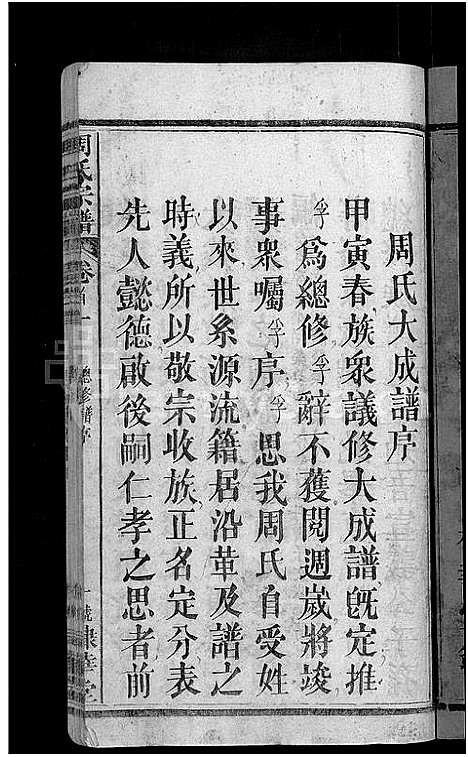 周氏大成譜序
甲寅春族衆議修大成譜旣定推
孚爲總修孚辭不獲閱週歲將竣
事衆囑孚序孚思我周氏自受姓
以來世系源流籍居沿革及譜之
時義所以敬宗收族正名定分表
先人懿德啟後嗣仁孝之思者前
周氏宗譜 卷首一 總修譜序